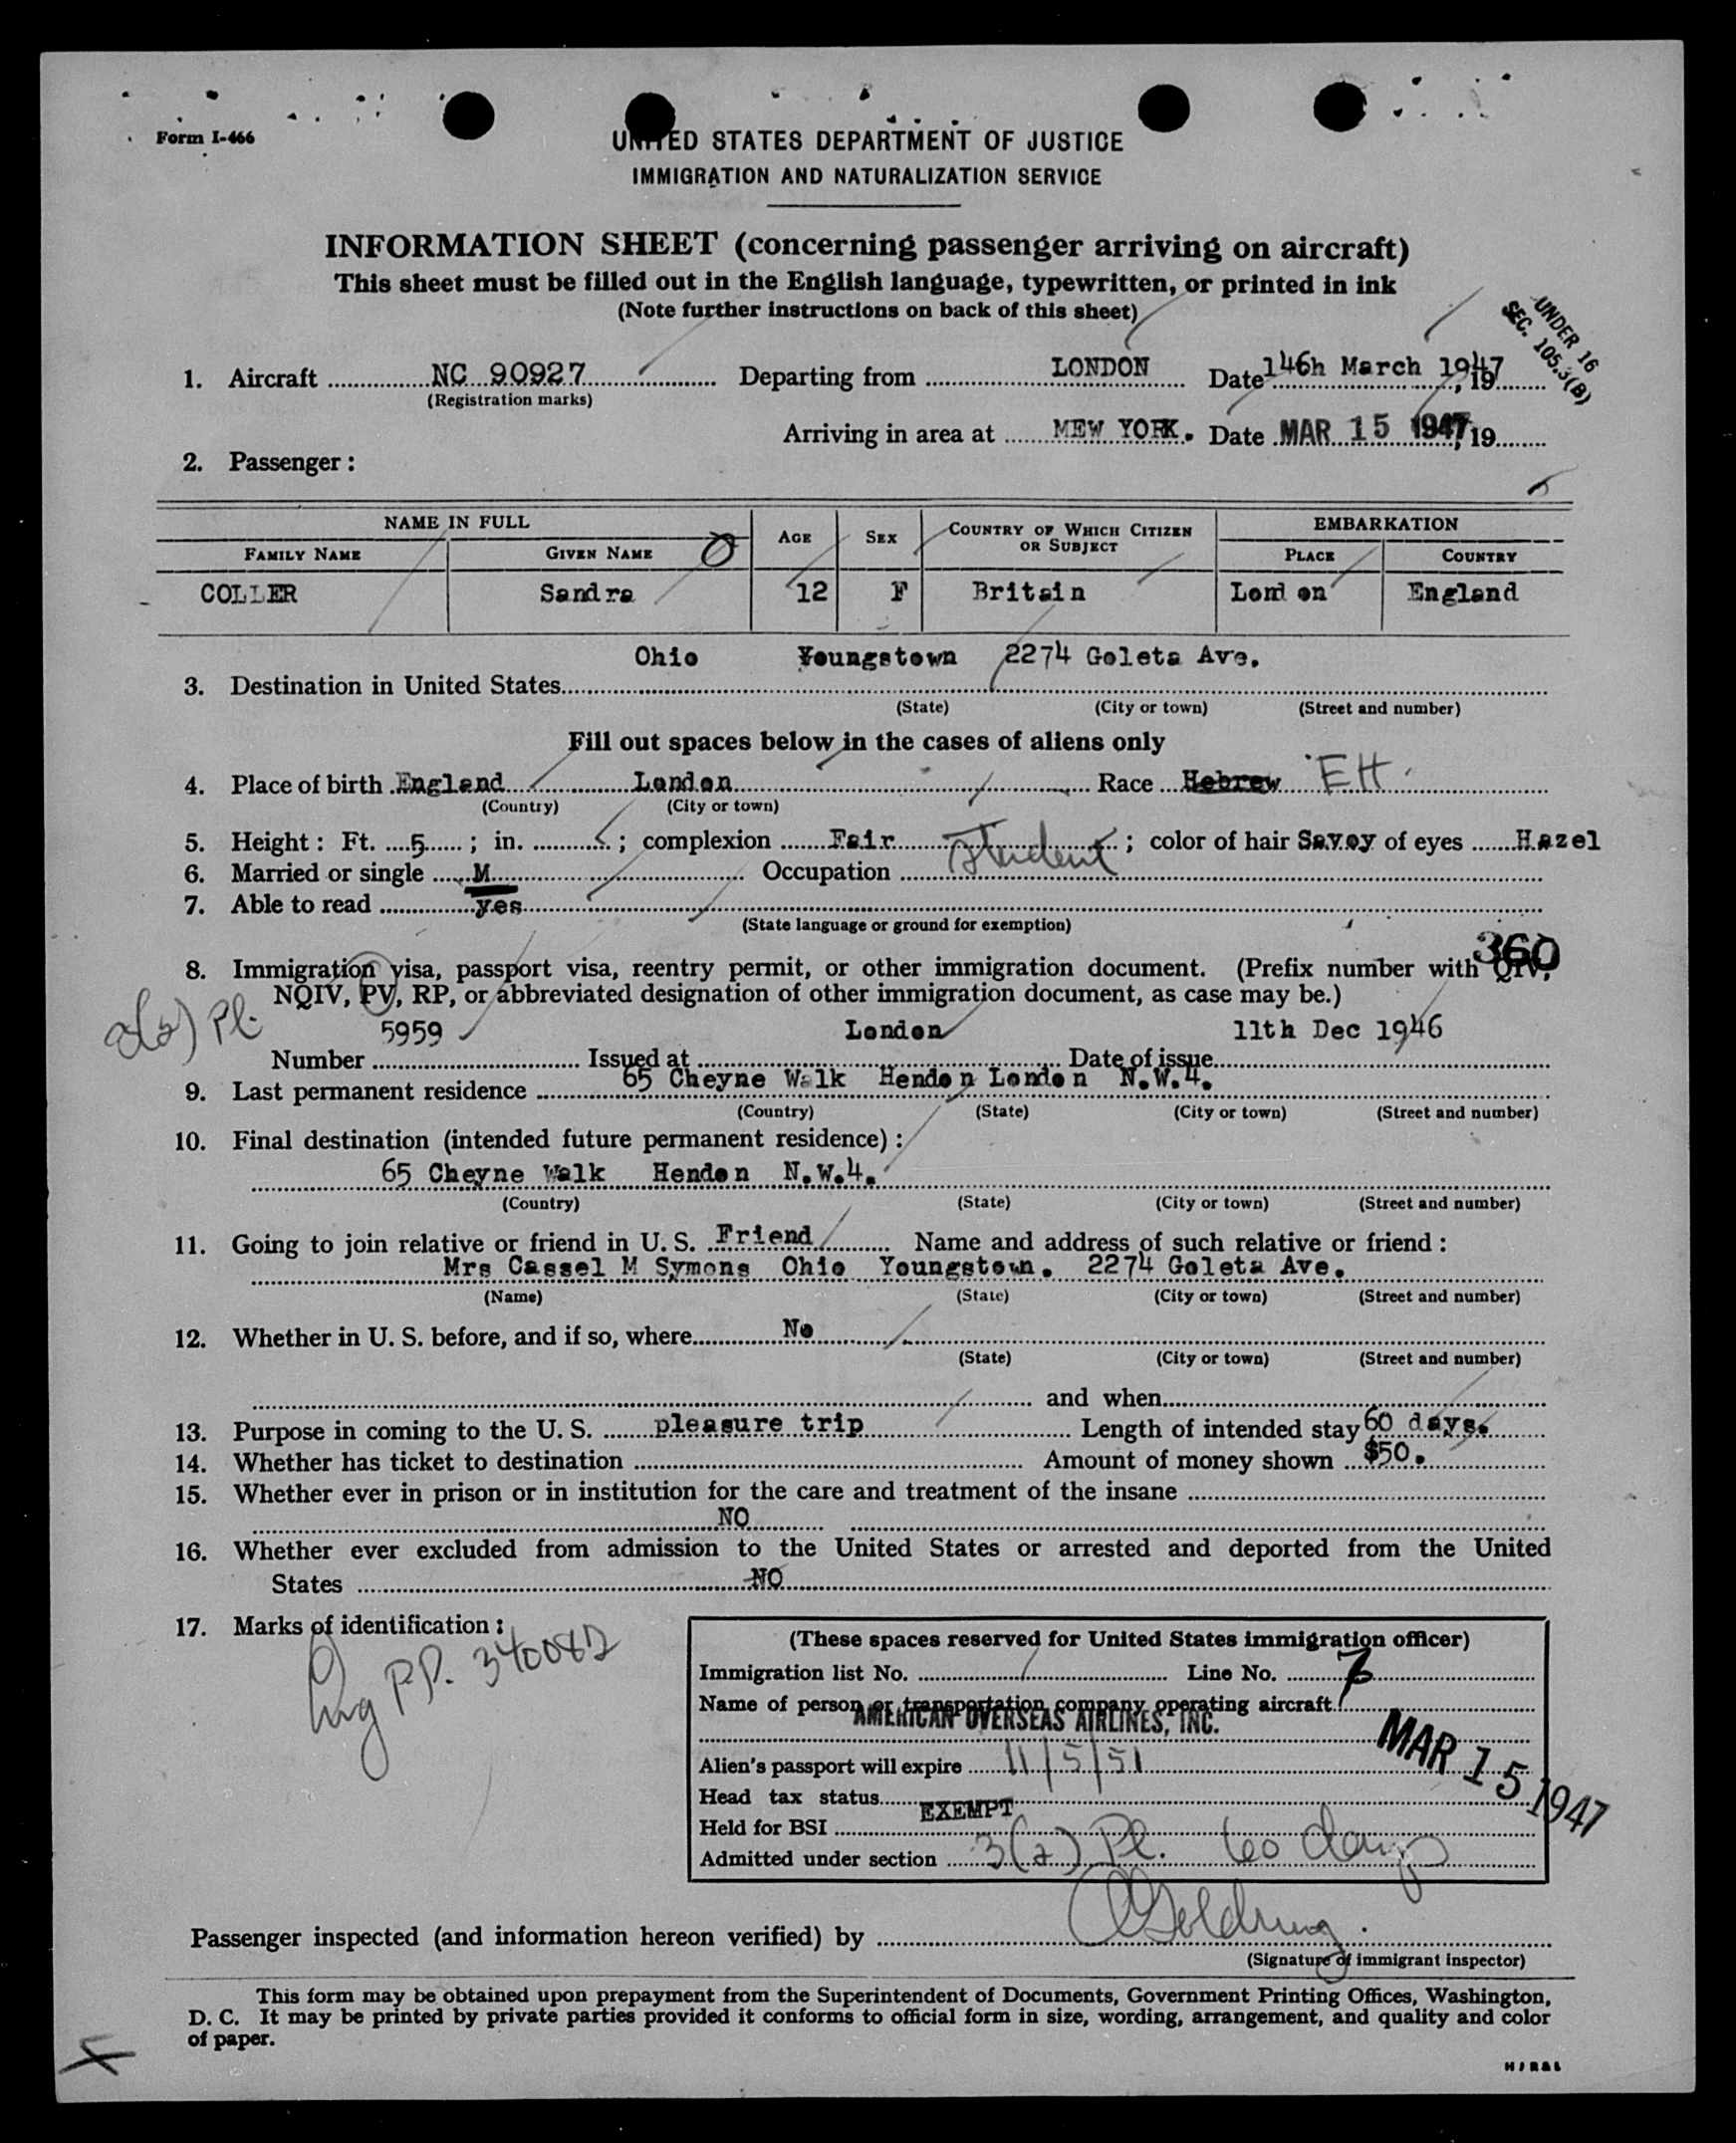 Form I-466
UNITED STATES DEPARTMENT OF JUSTICE
IMMIGRATION AND NATURALIZATION SERVICE
INFORMATION SHEET (concerning passenger arriving on aircraft)
This sheet must be filled out in the English language, typewritten, or printed in ink
(Note further instructions on back of this sheet)
UNDER 16
SEC. 105.3(B)
1. Aircraft NC 90927 Departing from LONDON Date 146h March 1947, 19
(Registration marks)
Arriving in area at MEW YORK. Date MAR 15 1947, 19
2. Passenger:
NAME IN FULL AGE SEX COUNTRY OF WHICH CITIZEN OR SUBJECT EMBARKATION
FAMILY NAME GIVEN NAME PLACE COUNTRY
COLLER Sandra 12 F Britain London England
Ohio Youngstown 2274 Goleta Ave.
3. Destination in United States
(State) (City or town) (Street and number)
Fill out spaces below in the cases of aliens only
4. Place of birth England London Race Hebrew EH
(Country) (City or town)
5. Height: Ft. 5; in. ; complexion Fair; color of hair Savoy of eyes Hazel
6. Married or single M Occupation Student
7. Able to read yes
(State language or ground for exemption)
360
8. Immigration visa, passport visa, reentry permit, or other immigration document. (Prefix number with QIV,
NQIV, PV, RP, or abbreviated designation of other immigration document, as case may be.)
5959 London 11th Dec 1946
Number Issued at Date of issue
9. Last permanent residence 65 Cheyne Walk Hendon London N.W.4.
(Country) (State) (City or town) (Street and number)
10. Final destination (intended future permanent residence):
65 Cheyne Walk Hendon N.W.4.
(Country) (State) (City or town) (Street and number)
11. Going to join relative or friend in U. S. Friend Name and address of such relative or friend:
Mrs Cassel M Symons Ohio Youngstown. 2274 Goleta Ave.
(Name) (State) (City or town) (Street and number)
12. Whether in U. S. before, and if so, where No
(State) (City or town) (Street and number)
and when
13. Purpose in coming to the U. S. pleasure trip Length of intended stay 60 days.
14. Whether has ticket to destination Amount of money shown $50.
15. Whether ever in prison or in institution for the care and treatment of the insane
NO
16. Whether ever excluded from admission to the United States or arrested and deported from the United
States NO
17. Marks of identification:
PP. 340082
(These spaces reserved for United States immigration officer)
Immigration list No. Line No.
Name of person or transportation company operating aircraft
AMERICAN OVERSEAS AIRLINES, INC.
MAR 15 1947
Alien's passport will expire 11/5/51
Head tax status
EXEMPT
Held for BSI
Admitted under section 3(2) Pl. 60 days
Passenger inspected (and information hereon verified) by
(Signature of immigrant inspector)
This form may be obtained upon prepayment from the Superintendent of Documents, Government Printing Offices, Washington,
D. C. It may be printed by private parties provided it conforms to official form in size, wording, arrangement, and quality and color
of paper.